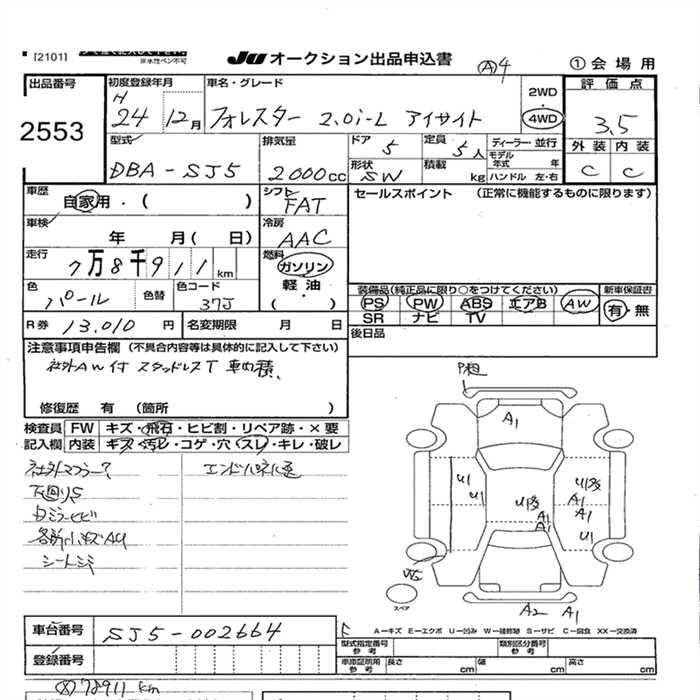 [2101] ※水性ペン不可
JU オークション出品申込書 Ⓐ4 ①会場用
出品番号 2553
初度登録年月 H 24 12月
車名・グレード フォレスター 2.0i-L アイサイト
2WD・4WD
評価点 3.5
外装 内装
C C
型式 DBA-SJ5
排気量 2000cc
ドア 5
定員 5人
ディーラー・並行
形状 SW
積載 kg
モデル年式 年
ハンドル 左・右
車歴 自家用・( )
シフト FAT
セールスポイント (正常に機能するものに限ります)
車検 年 月( 日)
冷房 AAC
走行 7万8千911km
燃料 ガソリン 軽油・( )
色 パール 色替
色コード 37J
装備品(純正品に限り○をつけてください) 新車保証書
PS PW ABS エアB AW 有・無
SR ナビ TV
R券 13,010円 名変期限 月 日
後日品
注意事項申告欄 (不具合内容等は具体的に記入して下さい)
社外AW付 スタッドレスT 車内積
修復歴 有 (箇所 )
検査員 FW キズ・飛石・ヒビ割・リペア跡・×要
記入欄 内装 キズ・汚レ・コゲ・穴・スレ・キレ・破レ
社外マフラー? エンドパネル歪
下回りS
各所小キズAU
シートシミ
A1
U1
U1
U1多
A1
A1
U1多
A1
A1
U1
スペア
A2 A1
A－キズ E－エクボ U－凹み W－補修跡 S－サビ C－腐食 XX－交換済
車台番号 SJ5-002664
型式指定番号 参考 類別区分番号 参考
登録番号
車庫証明用 参考 長さ cm 幅 cm 高さ cm
78911 km